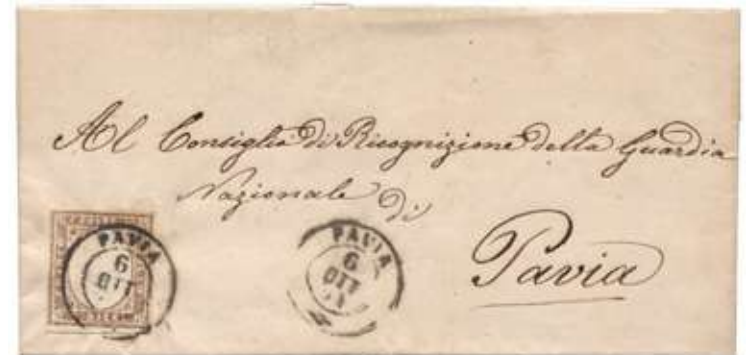 Al Consiglio di Ricognizione della Guardia
Nazionale di
Pavia
PAVIA
6
OTT
PAVIA
6
OTT